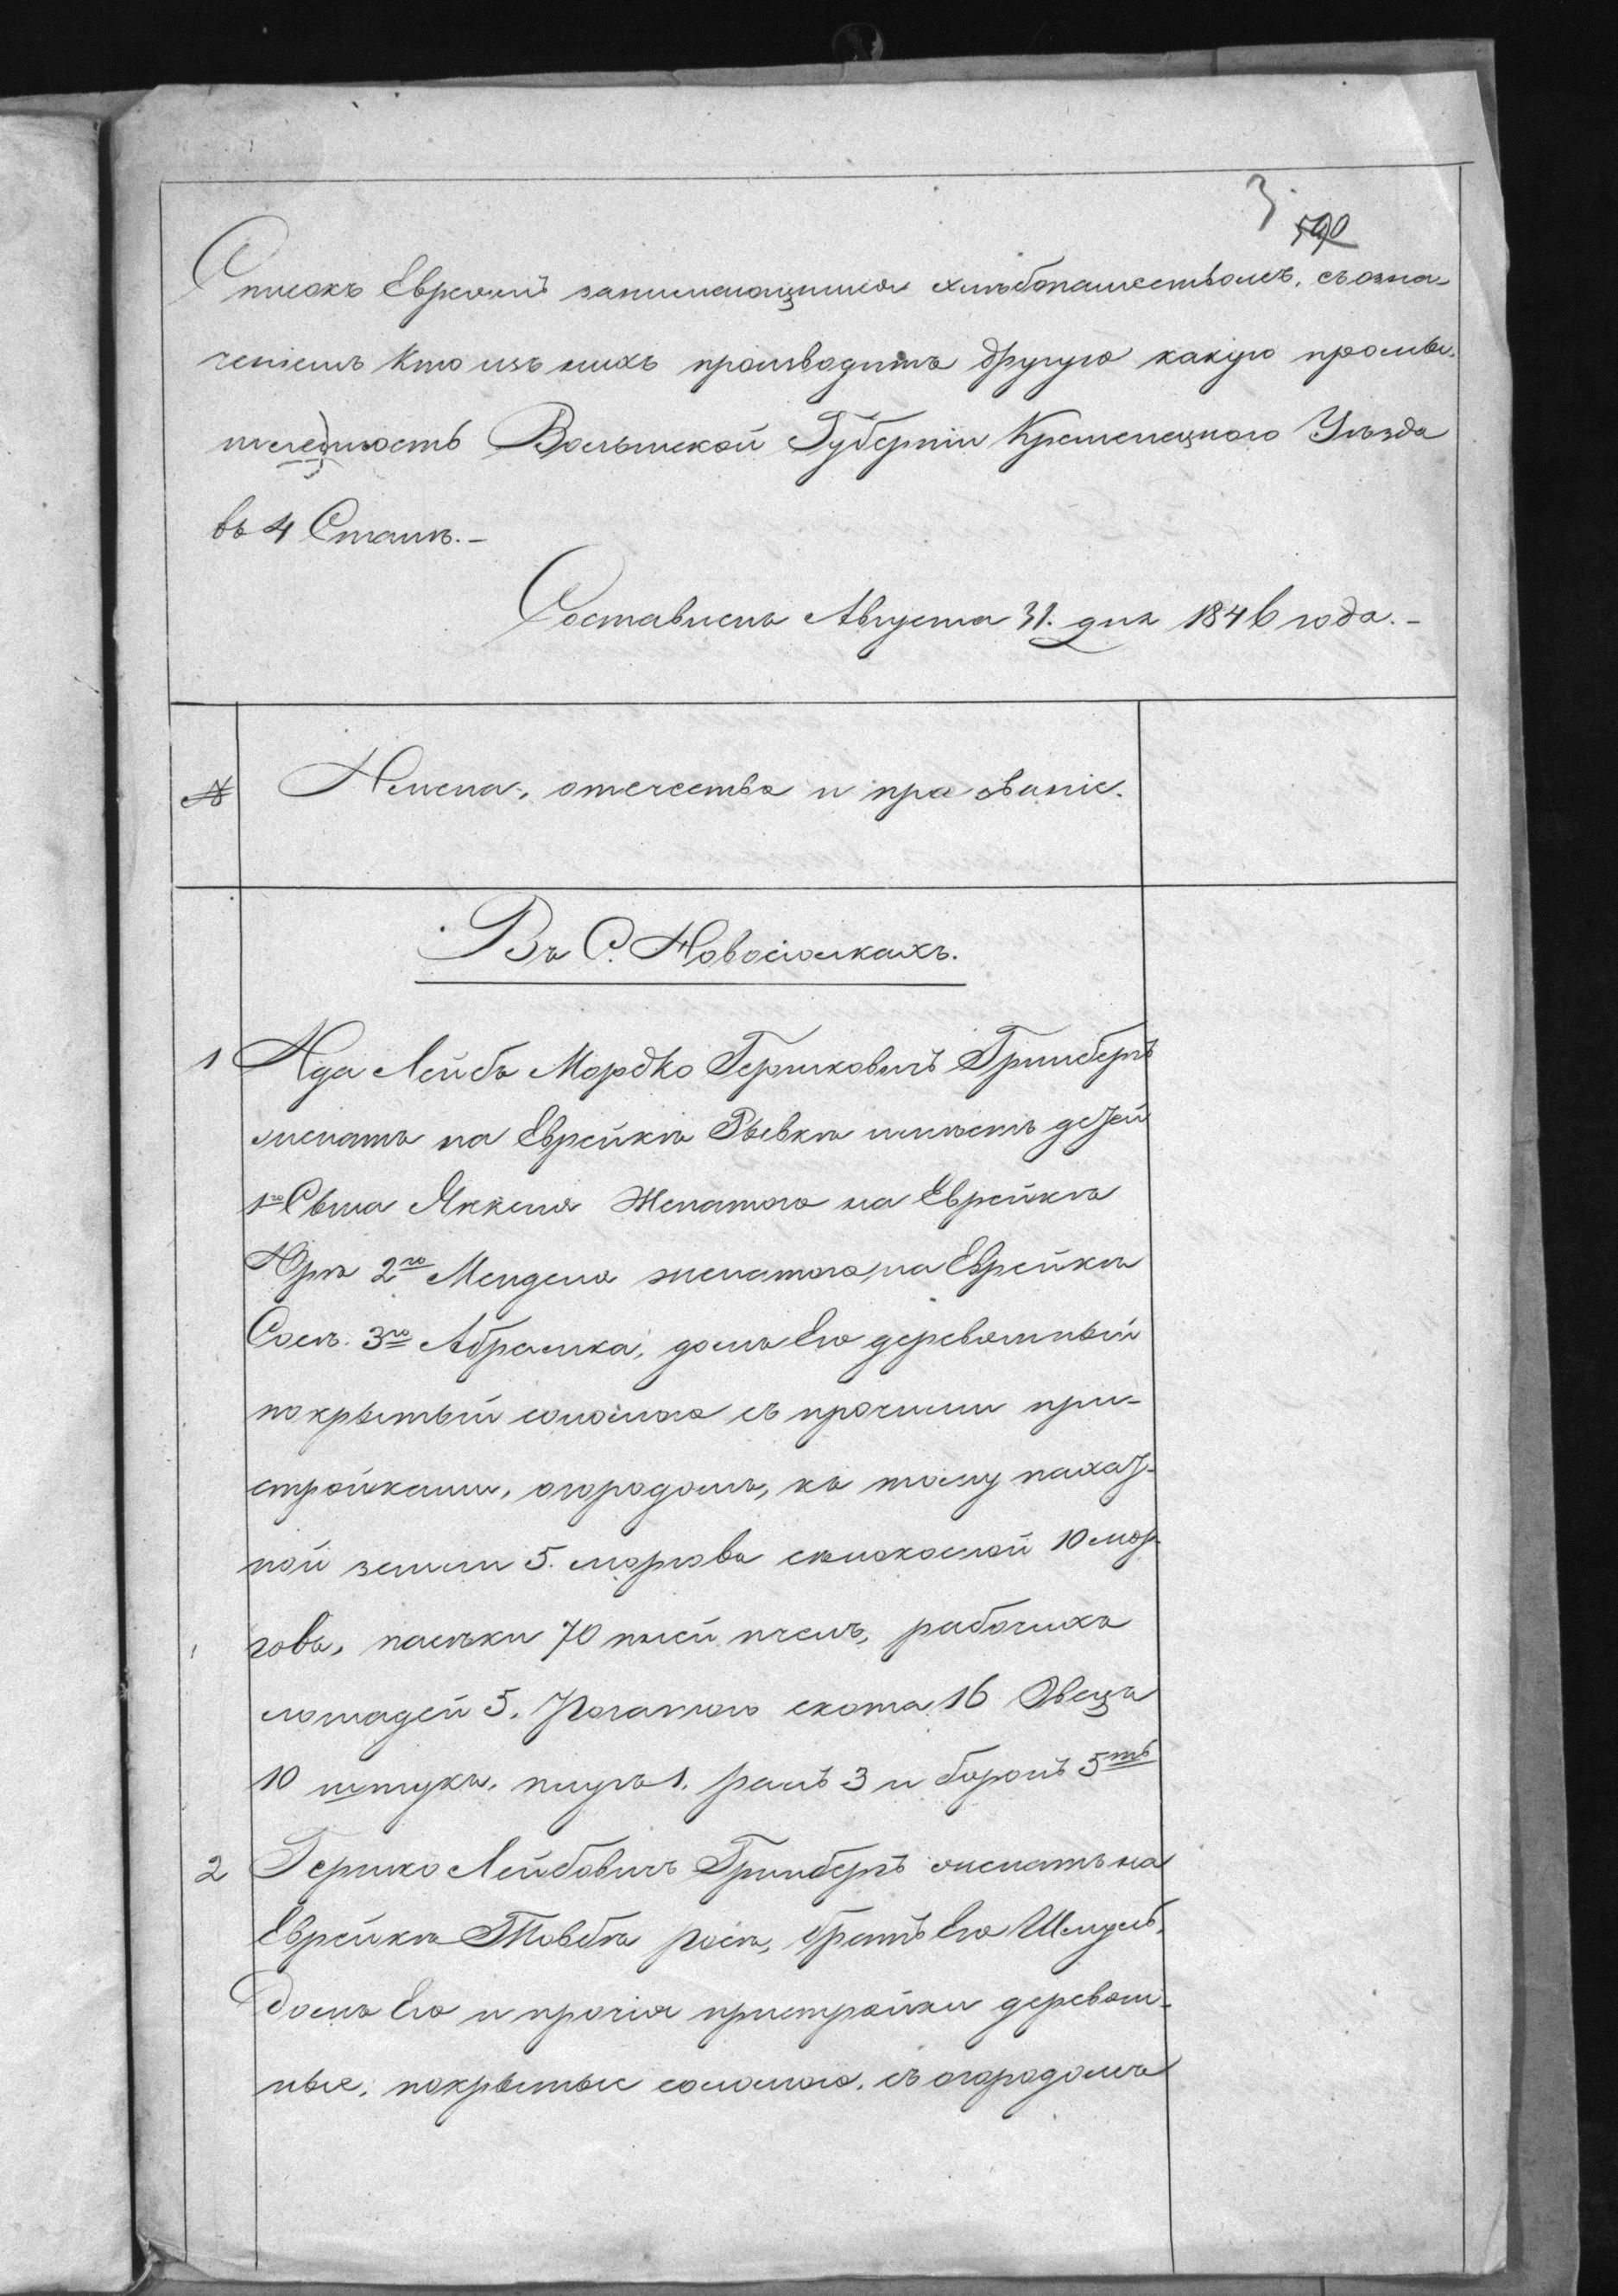 3
590
Списокъ Евреямъ занимающимся хлѣбопашествомъ, съ озна-
ченіемъ кто изъ нихъ производитъ другую какую промы-
шленность Волынской Губерніи Кременецкого Уѣзда
въ 4 Станѣ.-
Составленъ Августа 31. дня 1846 года.-
№ Имена, отечества и прозваніе.
Въ С. Новосіолкахъ.
1 Лейба Мордко Гершковичъ Гринбергъ
женатъ на Еврейкѣ Рывкѣ имѣетъ детей
1го Сына Янкеля Женатого на Еврейкѣ
2го Менделя женатого на Еврейкѣ
Сосѣ. 3го Абрамка, домъ Его деревянный
покрытый соломою съ прочими при-
стройками, огородомъ, къ тому пахат-
ной земли 5. морговъ сѣнокосной 10 мор-
говъ, пасѣки 70 пней пчелъ, рабочихъ
лошадей 5. Рогатого скота 16 Овецъ
10 штукъ. плугъ 1. ралъ 3 и боронъ 5ть
2 Гершко Лейбовичъ Гринбергъ женатъ на
Еврейкѣ Товбѣ Росѣ, братъ Его Шмуль,
домъ Его и прочія пристройки деревян-
ные, покрытые соломою, съ огородомъ